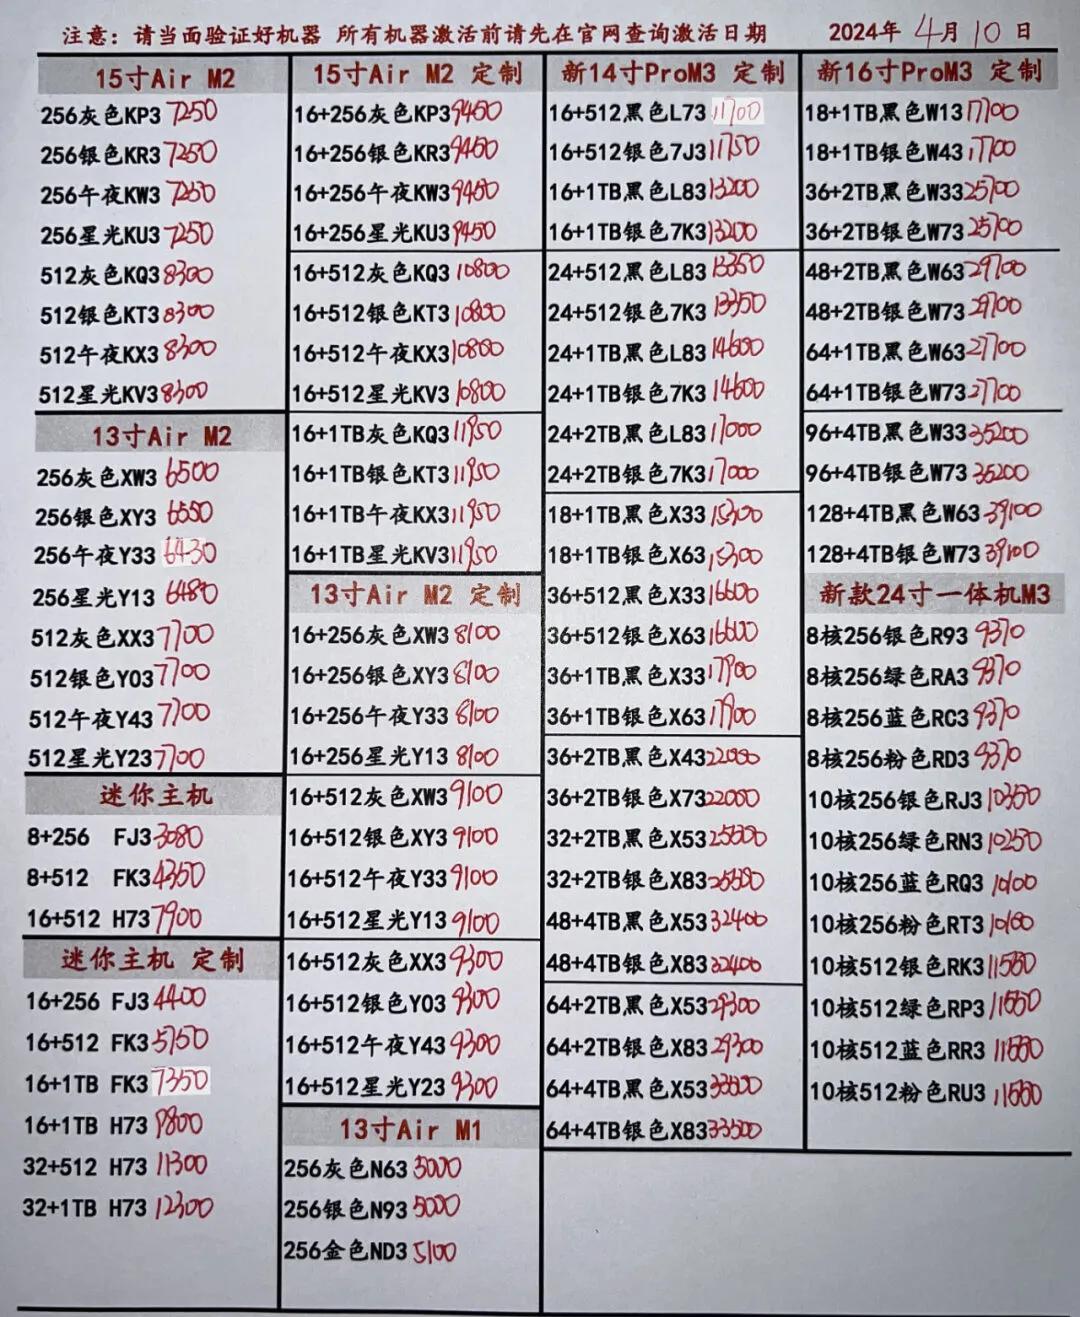 注意：请当面验证好机器 所有机器激活前请先在官网查询激活日期 2024年 4月 10日
15寸Air M2
256灰色KP3 7250
256银色KR3 7250
256午夜KW3 7250
256星光KU3 7250
512灰色KQ3 8300
512银色KT3 8300
512午夜KX3 8300
512星光KV3 8300
13寸Air M2
256灰色XW3 6500
256银色XY3 6550
256午夜Y33 6430
256星光Y13 6480
512灰色XX3 7700
512银色Y03 7700
512午夜Y43 7700
512星光Y23 7700
迷你主机
8+256 FJ3 3080
8+512 FK3 4350
16+512 H73 7900
迷你主机 定制
16+256 FJ3 4400
16+512 FK3 5750
16+1TB FK3 7350
16+1TB H73 9800
32+512 H73 11300
32+1TB H73 12300
15寸Air M2 定制
16+256灰色KP3 9450
16+256银色KR3 9450
16+256午夜KW3 9450
16+256星光KU3 9450
16+512灰色KQ3 10800
16+512银色KT3 10800
16+512午夜KX3 10800
16+512星光KV3 10800
16+1TB灰色KQ3 11950
16+1TB银色KT3 11950
16+1TB午夜KX3 11950
16+1TB星光KV3 11950
13寸Air M2 定制
16+256灰色XW3 8100
16+256银色XY3 8100
16+256午夜Y33 8100
16+256星光Y13 8100
16+512灰色XW3 9100
16+512银色XY3 9100
16+512午夜Y33 9100
16+512星光Y13 9100
16+512灰色XX3 9300
16+512银色Y03 9300
16+512午夜Y43 9300
16+512星光Y23 9300
13寸Air M1
256灰色N63 5000
256银色N93 5000
256金色ND3 5100
新14寸ProM3 定制
16+512黑色L73 11700
16+512银色7J3 11750
16+1TB黑色L83 13200
16+1TB银色7K3 13200
24+512黑色L83 13350
24+512银色7K3 13350
24+1TB黑色L83 14600
24+1TB银色7K3 14600
24+2TB黑色L83 17000
24+2TB银色7K3 17000
18+1TB黑色X33 15300
18+1TB银色X63 15300
36+512黑色X33 16600
36+512银色X63 16600
36+1TB黑色X33 17900
36+1TB银色X63 17900
36+2TB黑色X43 22000
36+2TB银色X73 22000
32+2TB黑色X53 25500
32+2TB银色X83 25500
48+4TB黑色X53 32400
48+4TB银色X83 32400
64+2TB黑色X53 29300
64+2TB银色X83 29300
64+4TB黑色X53 33500
64+4TB银色X83 33500
新16寸ProM3 定制
18+1TB黑色W13 17700
18+1TB银色W43 17700
36+2TB黑色W33 25700
36+2TB银色W73 25700
48+2TB黑色W63 29700
48+2TB银色W73 29700
64+1TB黑色W63 27700
64+1TB银色W73 27700
96+4TB黑色W33 35200
96+4TB银色W73 35200
128+4TB黑色W63 39100
128+4TB银色W73 39100
新款24寸一体机M3
8核256银色R93 9370
8核256绿色RA3 9370
8核256蓝色RC3 9370
8核256粉色RD3 9370
10核256银色RJ3 10350
10核256绿色RN3 10250
10核256蓝色RQ3 10100
10核256粉色RT3 10100
10核512银色RK3 11550
10核512绿色RP3 11550
10核512蓝色RR3 11550
10核512粉色RU3 11550